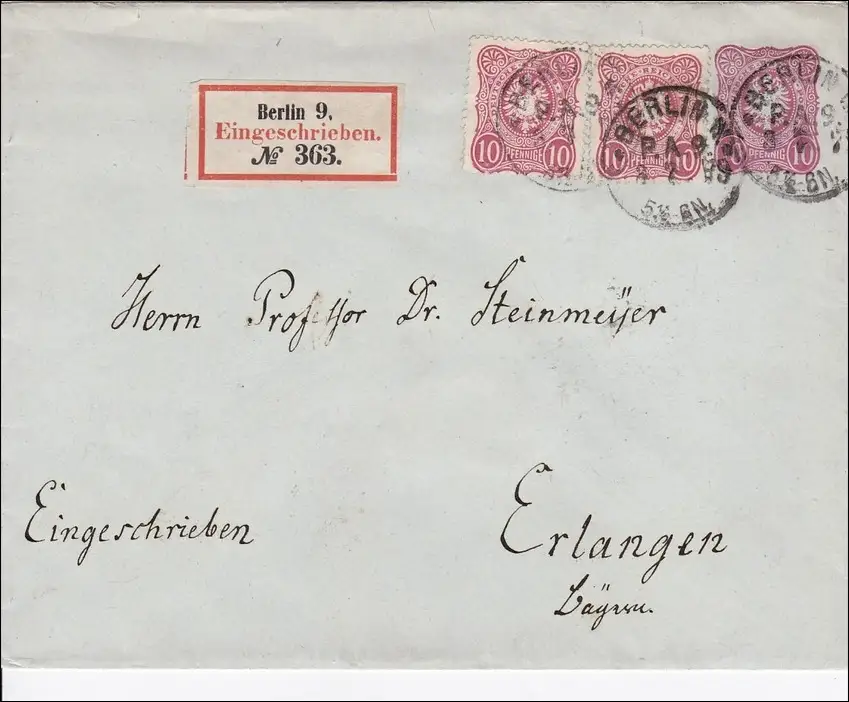 Berlin 9.
Eingeschrieben.
№ 363.
10 PFENNIGE 10
10 PFENNIGE 10
PFENNIG 10
BERLIN
BERLIN
P.A 9
5½-6N.
BERLIN
P.A 9
5½-6N.
Herrn Professor Dr. Steinmeÿer
Eingeschrieben
Erlangen
Bayern.